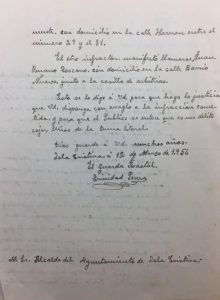 mente. con domicilio en la calle Hernan entre el
número 29 y el 31.
El otro infractor. manifestó llamarse, Juan
Romano Toscano. con domicilio en la calle Barrio
Nuevo, junto a la casilla de arbitrios.
Esto es lo digo a Vd para que haga la justicia
que Vd. disponga con arreglo a la infracción come-
tida; y para que el publico se entere que es un delito
cojer leña de la zona litoral.
Dios guarde a Vd. muchos años.
Isla Cristina, a 12 de Marzo de 1956
El guarda Forestal
Trinidad
Al Sr. Alcalde del Ayuntamiento de Isla Cristina.